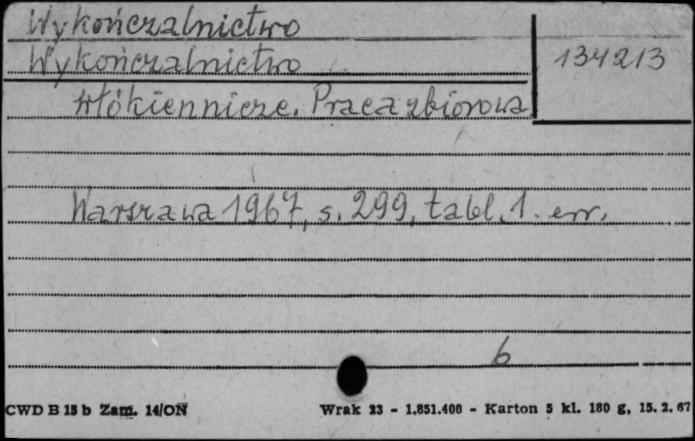 Wykończalnictwo
Wykończalnictwo
134213
włókiennicze. Praca zbiorowa
Warszawa 1967, s. 299, tabl. 1. err.
6
CWD B 15 b Zam. 14/ON
Wrak 23 - 1.851.400 - Karton 5 kl. 180 g, 15. 2. 67